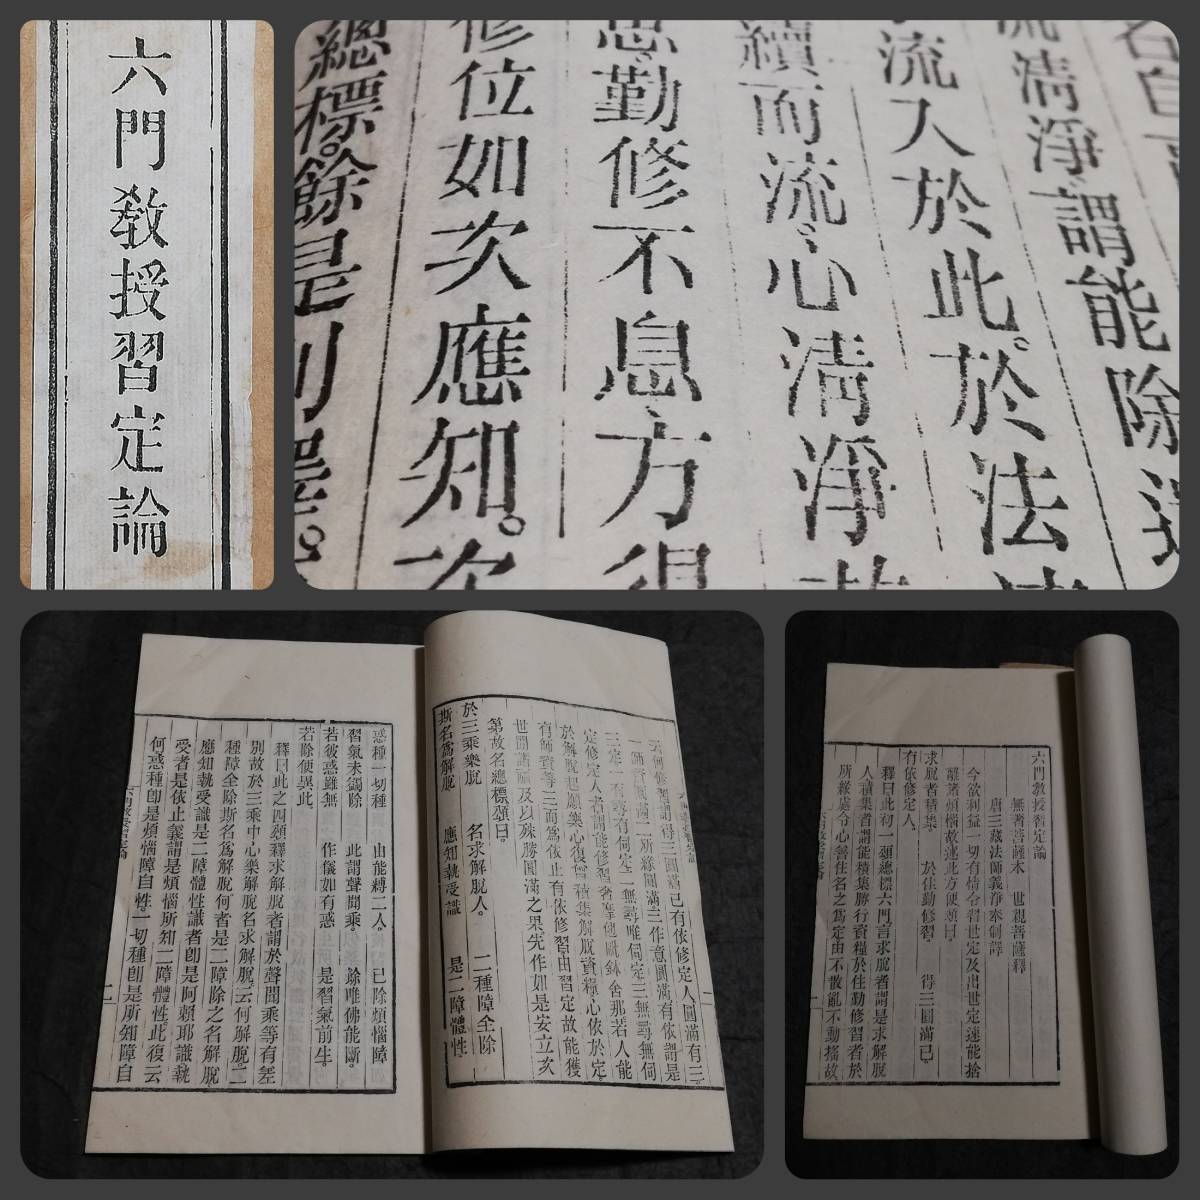 六門教授習定論
清淨謂能除
流入於此。於法
續而流、心清淨
勤修不息、方得
修位如次應知。次
總標。餘是別釋。
云何修習謂得三圓滿已有依修定人圓滿有三。
一師資圓滿二所緣圓滿三作意圓滿有依謂是
三定一有尋有伺定二無尋唯伺定三無尋無伺
定修定人者謂能修習奢摩他毗鉢舍那若人能
於解脫起願樂心復曾積集解脫資糧心依於定。
有師資等三而為依止有依修習由習定故能獲
世間諸福及以殊勝圓滿之果先作如是安立次
第故名總標頌曰。
於三乘樂脫 名求解脫人。 二種障全除
斯名爲解脫 應知執受識 是二障體性
惑種一切種 由能縛二人。 已除煩惱障
習氣未蠲除 此謂聲聞乘。 餘唯佛能斷。
若彼惑雖無 作儀如有惑 是習氣前生。
若除便異此。
釋曰此之四頌釋求解脫者謂於聲聞乘等有差
別故於三乘中心樂解脫名求解脫。云何解脫。二
種障全除斯名爲解脫何者是二障除之名解脫
應知執受識是二障體性識者卽是阿賴耶識執
受者是依止義謂是煩惱所知二障體性此復云
何惑種卽是煩惱障自性。一切種卽是所知障自
六門教授習定論
無著菩薩本 世親菩薩釋
唐三藏法師義淨奉制譯
今欲利益一切有情令習世定及出世定速能捨
離諸煩惱故述此方便頌曰。
求脫者積集 於住勤修習。 得三圓滿已。
有依修定人。
釋曰此初一頌總標六門言求脫者謂是求解脫
人積集者謂能積集勝行資糧於住勤修習者於
所緣處令心善住名之爲定由不散亂不動搖故。